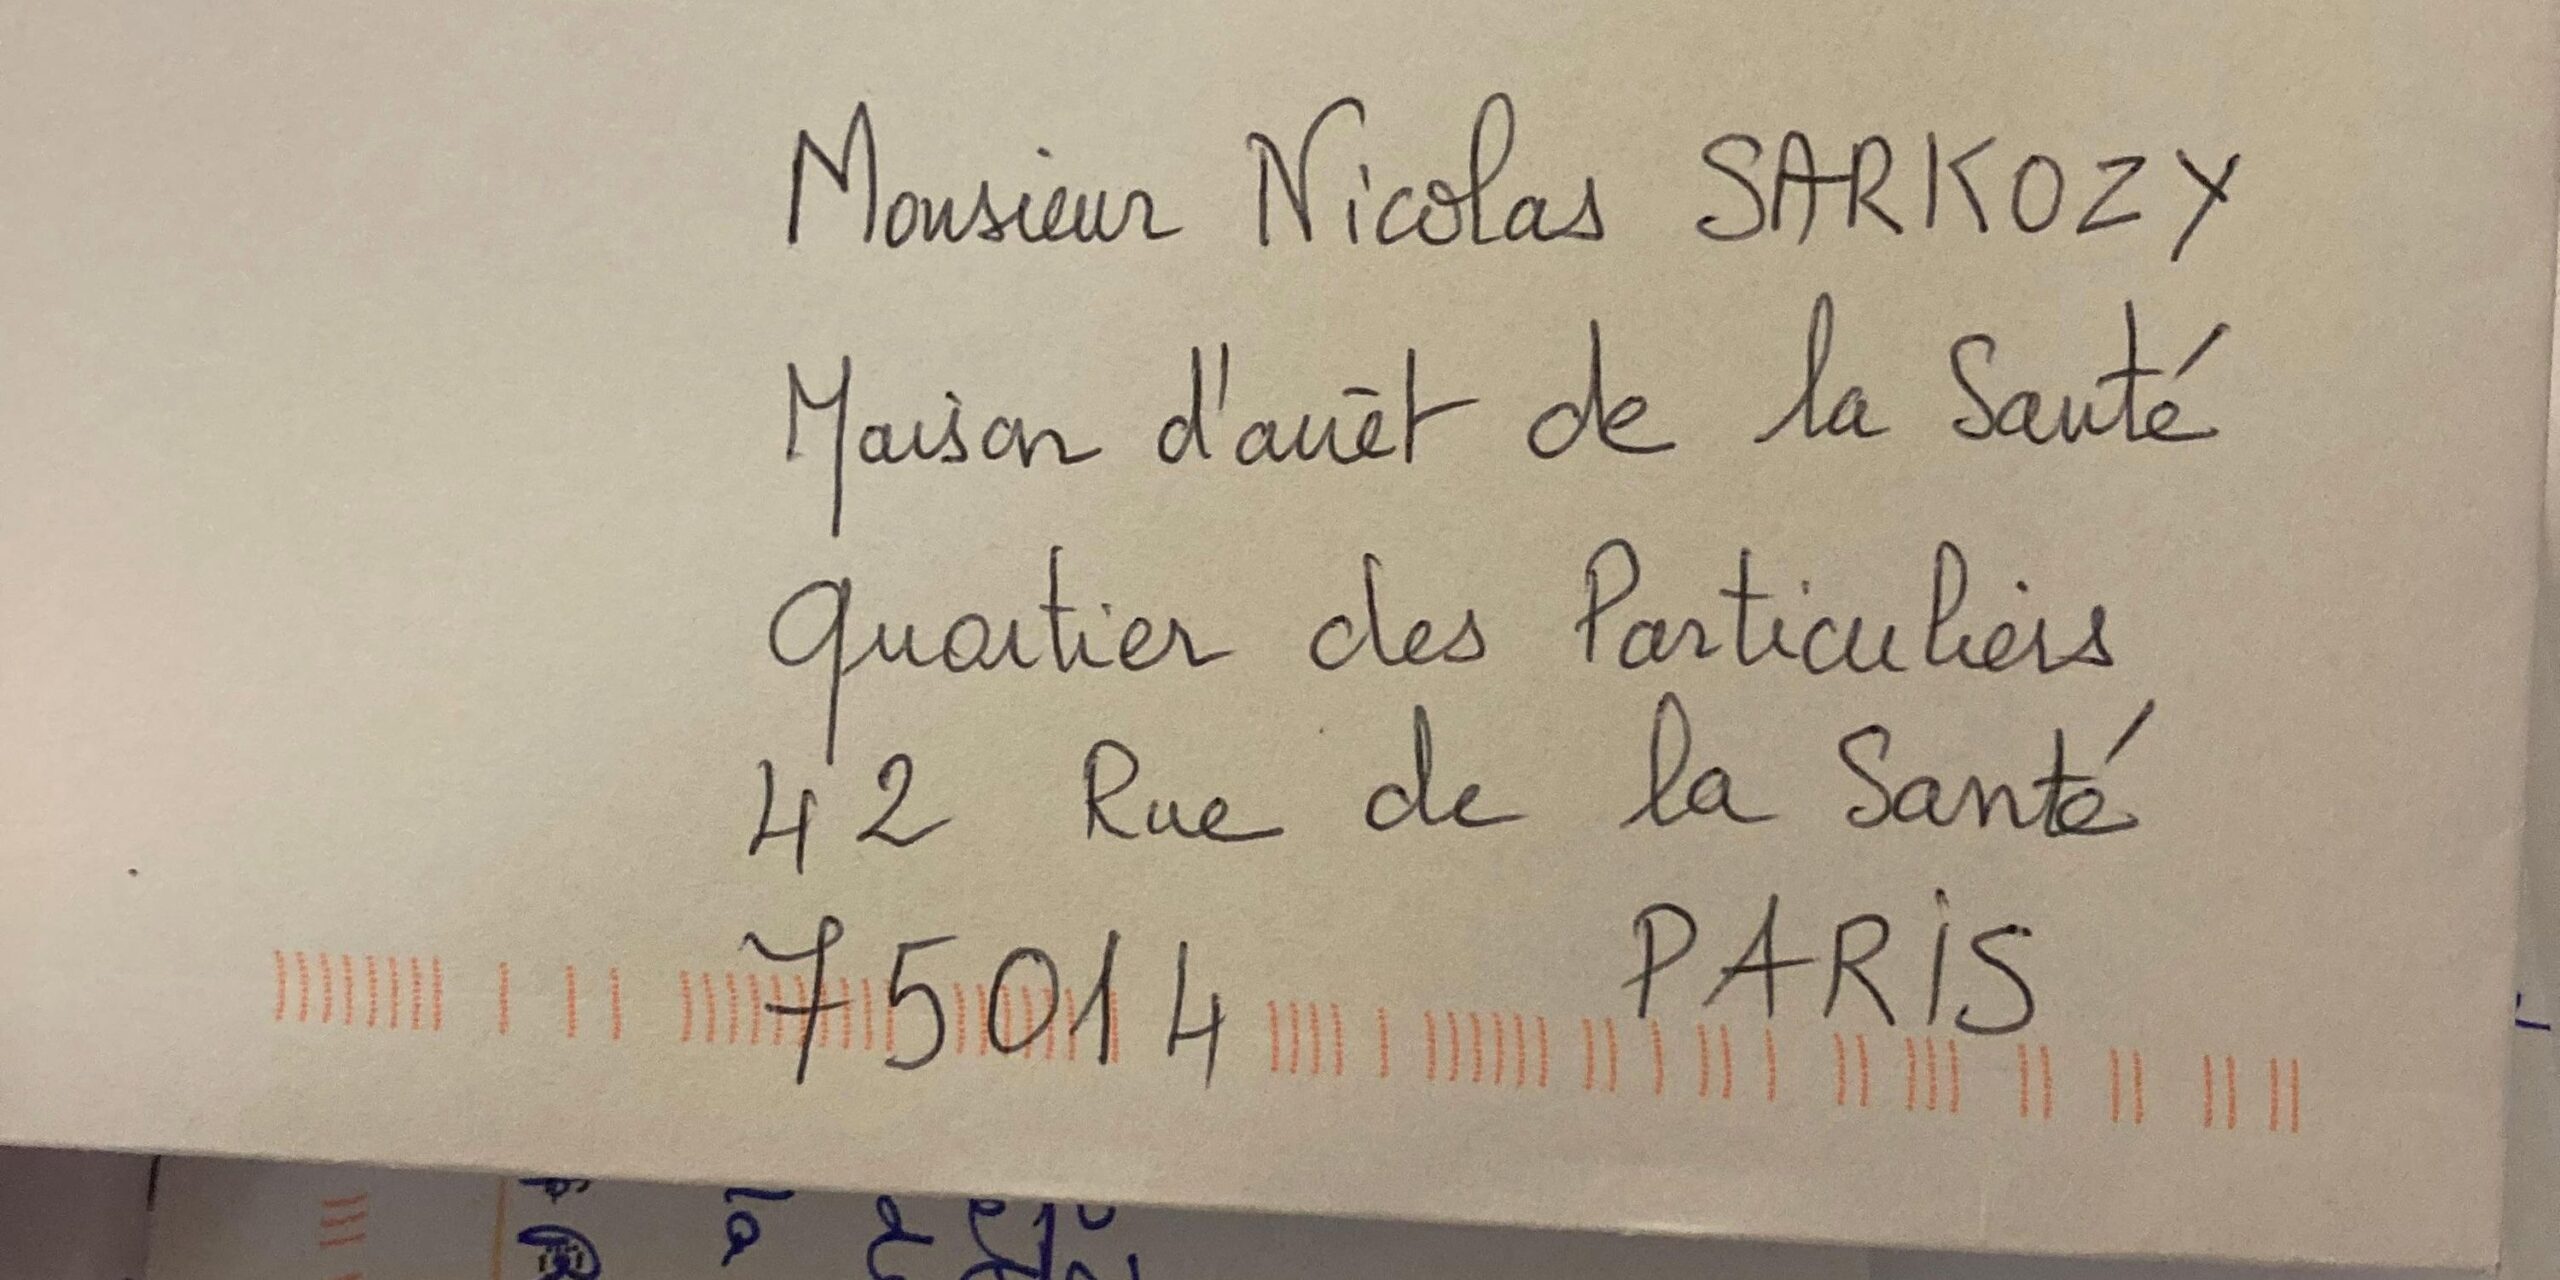 Monsieur Nicolas SARKOZY
Maison d'arrêt de la Santé
Quartier des Particuliers
42 Rue de la Santé
75014 PARIS